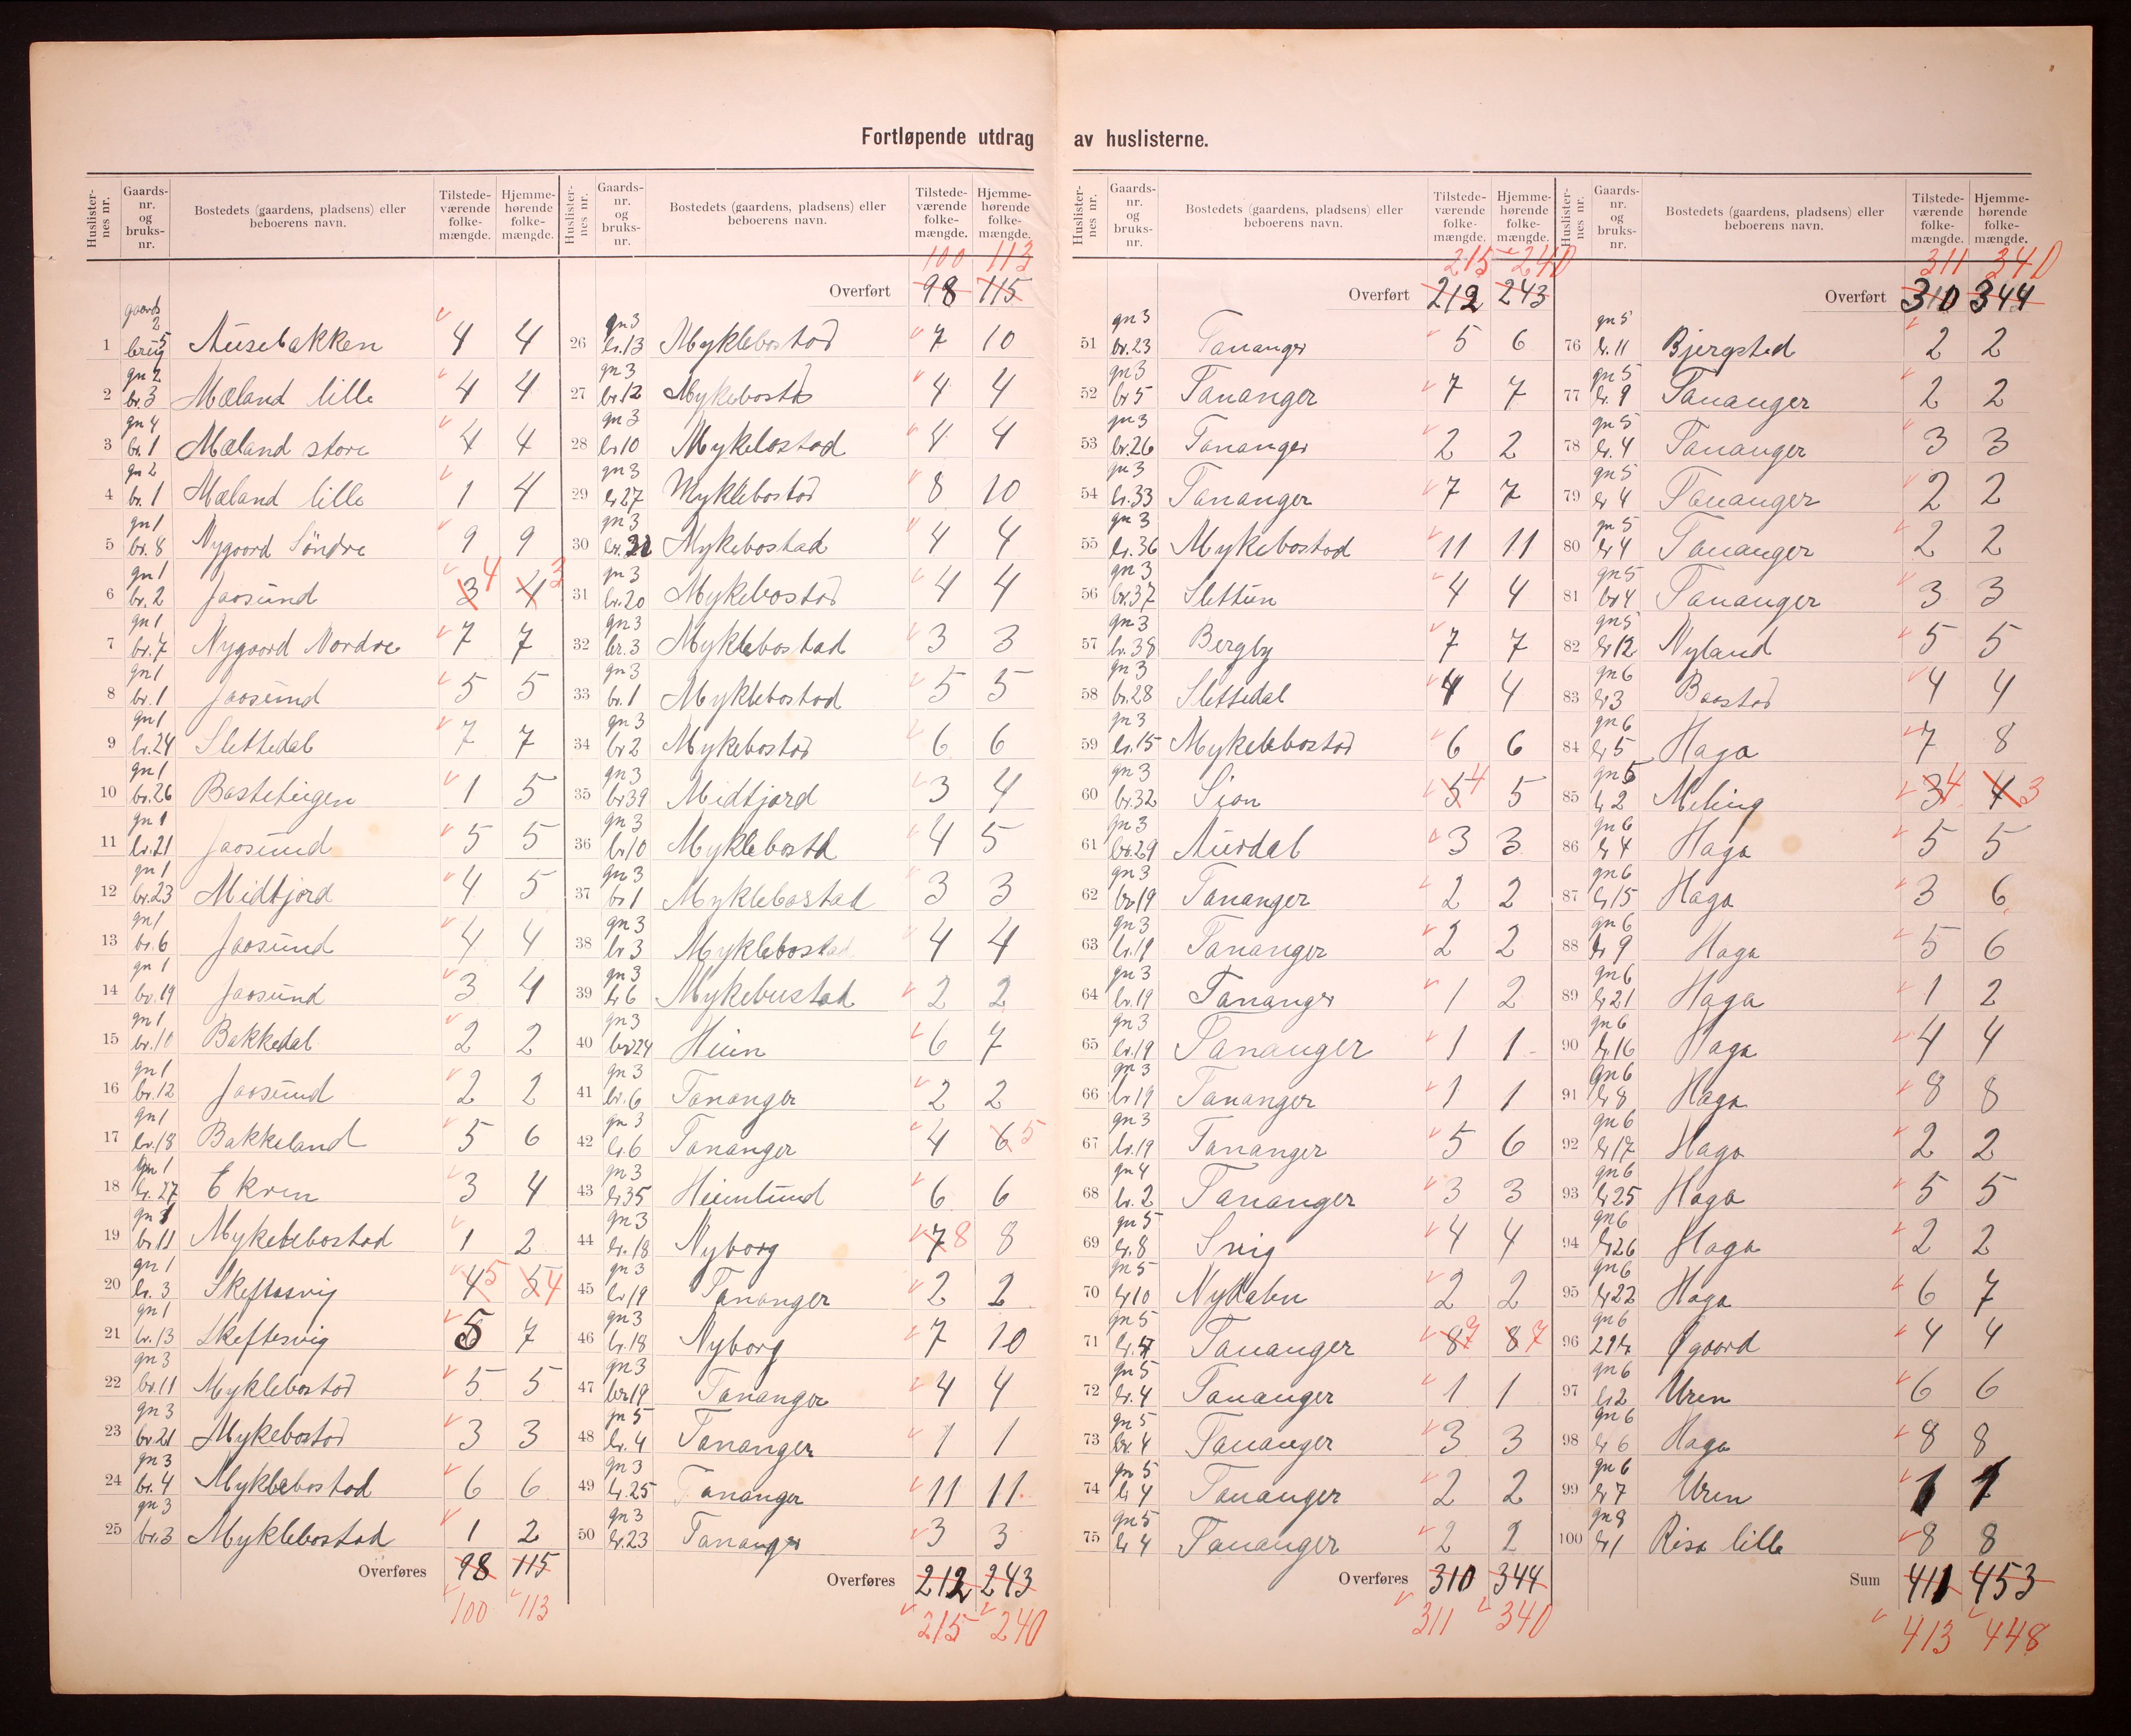 Fortløpende utdrag av huslisterne.
Huslister-nes nr. Gaards-nr. og bruks-nr. Bostedets (gaardens, pladsens) eller beboerens navn. Tilstede-værende folke-mængde. Hjemme-hørende folke-mængde.
1 gaards 2 brug 5 Ausebakken 4 4
2 gn 2 br. 3 Mæland lille 4 4
3 gn 4 br. 1 Mæland store 4 4
4 gn 2 br. 1 Mæland lille 1 4
5 gn 1 br. 8 Nygaard Söndre 9 9
6 gn 1 br. 2 Jaasund 3 4 4 3
7 gn 1 br. 7 Nygaard Nordre 7 7
8 gn 1 br. 1 Jaasund 5 5
9 gn 1 br. 24 Slettedal 7 7
10 gn 1 br. 26 1 5
11 gn 1 br. 21 Jaasund 5 5
12 gn 1 br. 23 Midtjord 4 5
13 gn 1 br. 6 Jaasund 4 4
14 gn 1 br. 19 Jaasund 3 4
15 gn 1 br. 10 Bakkedal 2 2
16 gn 1 br. 12 Jaasund 2 2
17 gn 1 br. 18 Bakkeland 5 6
18 gn 1 br. 27 Ekren 3 4
19 gn 1 br 11 Mykelebostad 1 2
20 gn 1 br. 3 Skeftesvig 4 5 5 4
21 gn 1 br. 13 Skeftesvig 5 7
22 gn 3 br. 11 Myklebostad 5 5
23 gn 3 br. 21 Mykebostad 3 3
24 gn 3 br. 4 Myklebostad 6 6
25 gn 3 br. 3 Myklebostad 1 2
Overføres 98 115
100 113
Huslister-nes nr. Gaards-nr. og bruks-nr. Bostedets (gaardens, pladsens) eller beboerens navn. Tilstede-værende folke-mængde. Hjemme-hørende folke-mængde.
100 113
Overført 98 115
26 gn 3 br. 13 Myklebostad 7 10
27 gn 3 br. 12 Mykebostad 4 4
28 gn 3 br 10 Mykelostad 4 4
29 gn 3 br 27 Myklebostad 8 10
30 gn 3 br. Mykebostad 4 4
31 gn 3 br. 20 Mykebostad 4 4
32 gn 3 br. 3 Myklebostad 3 3
33 gn 3 br. 1 Myklebostad 5 5
34 gn 3 br 2 Mykebostad 6 6
35 gn 3 br 39 Midtjord 3 4
36 gn 3 br 10 Myklebostd 4 5
37 gn 3 br 1 Myklebostad 3 3
38 gn 3 br 3 Myklebostad 4 4
39 gn 3 br 6 Mykebustad 2 2
40 gn 3 br 24 Heim 6 7
41 gn 3 br. 6 Tananger 2 2
42 gn 3 br. 6 Tananger 4 6 5
43 gn 3 br 35 Heimlund 6 6
44 gn 3 br. 18 Nyborg 7 8 8
45 gn 3 br 19 Tananger 2 2
46 gn 3 br. 18 Nyborg 7 10
47 gn 3 br 19 Tananger 4 4
48 gn 5 br. 4 Tananger 1 1
49 gn 3 br. 25 Tananger 11 11
50 gn 3 br. 23 Tananger 3 3
Overføres 212 243
215 240
Huslister-nes nr. Gaards-nr. og bruks-nr. Bostedets (gaardens, pladsens) eller beboerens navn. Tilstede-værende folke-mængde. Hjemme-hørende folke-mængde.
215 240
Overført 212 243
51 gn 3 br. 23 Tananger 5 6
52 gn 3 br 5 Tananger 7 7
53 gn 3 br. 26 Tananger 2 2
54 gn 3 br. 33 Tananger 7 7
55 gn 3 br. 36 Mykebostad 11 11
56 gn 3 br. 37 Slettun 4 4
57 gn 3 br. 38 Bergby 7 7
58 gn 3 br. 28 Slettedal 4 4
59 gn 3 br. 15 Mykelebostad 6 6
60 gn 3 br. 32 Sion 5 4 5
61 gn 3 br. 29 Aurdal 3 3
62 gn 3 br 19 Tananger 2 2
63 gn 3 br. 19 Tananger 2 2
64 gn 3 br. 19 Tananger 1 2
65 gn 3 br. 19 Tananger 1 1
66 gn 3 br 19 Tananger 1 1
67 gn 3 br. 19 Tananger 5 6
68 gn 4 br. 2 Tananger 3 3
69 gn 5 br. 8 Svig 4 4
70 gn 5 br 10 2 2
71 gn 5 br. Tananger 8 7 8 7
72 gn 5 br. 4 Tananger 1 1
73 gn 5 br. 4 Tananger 3 3
74 gn 5 br 4 Tananger 2 2
75 gn 5 br 4 Tananger 2 2
Overføres 310 344
311 340
Huslister-nes nr. Gaards-nr. og bruks-nr. Bostedets (gaardens, pladsens) eller beboerens navn. Tilstede-værende folke-mængde. Hjemme-hørende folke-mængde.
311 340
Overført 310 344
76 gn 5 br. 11 Bjergsted 2 2
77 gn 5 br. 9 Tananger 2 2
78 gn 5 br. 4 Tananger 3 3
79 gn 5 br 4 Tananger 2 2
80 gn 5 br 4 Tananger 2 2
81 gn 5 br 4 Tananger 3 3
82 gn 5 br 12 Nyland 5 5
83 gn 6 br 3 Baastad 4 4
84 gn 6 br 5 Haga 7 8
85 gn br 2 Meling 3 4 4 3
86 gn 6 br 4 Haga 5 5
87 gn 6 br 15 Haga 3 6
88 gn 6 br 9 Haga 5 6
89 gn 6 br 21 Haga 1 2
90 gn 6 br. 16 Haga 4 4
91 gn 6 br 8 Haga 8 8
92 gn 6 br 17 Haga 2 2
93 gn 6 br 25 Haga 5 5
94 gn 6 br 26 Haga 2 2
95 gn 6 br 22 Haga 6 7
96 gn 6 Øgaard 4 4
97 gn 6 br 2 Uren 6 6
98 gn 6 br 6 Haga 8 8
99 gn 6 br 7 Uren 1 1
100 gn 8 br 1 Risa lille 8 8
Sum 411 453
413 448